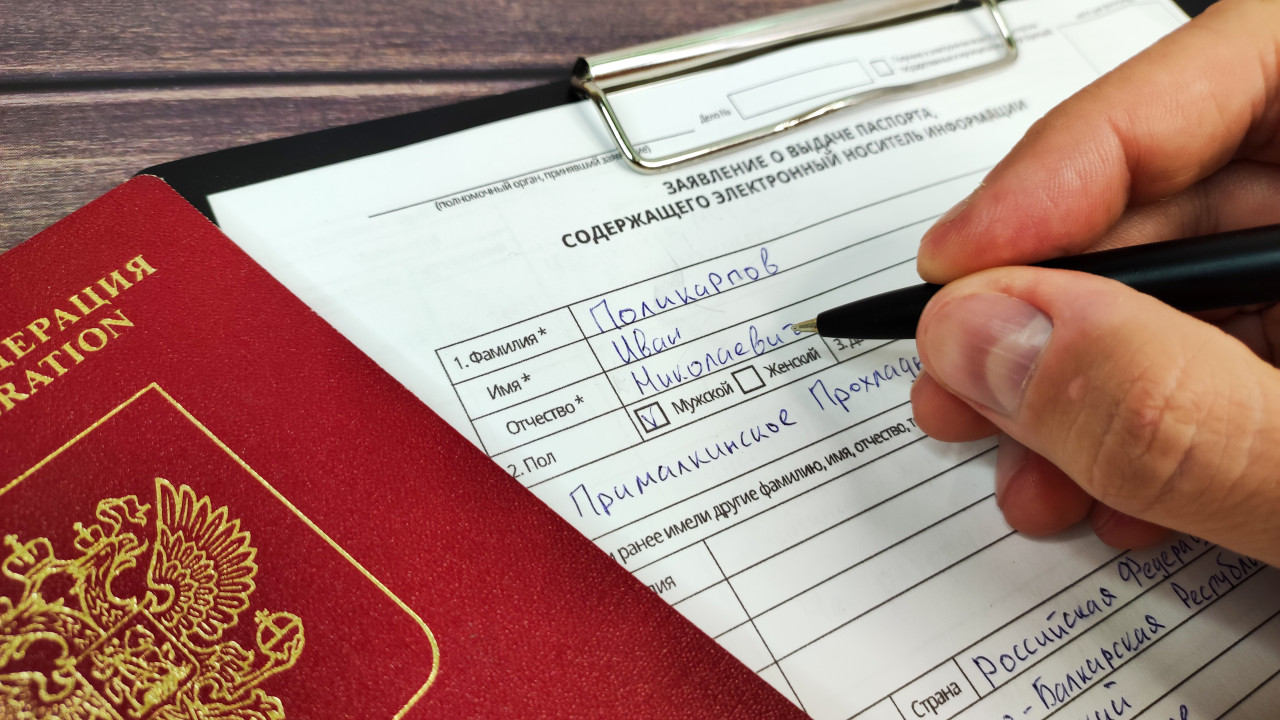 Дело №
(полномочный орган, принявший заявление)
ЗАЯВЛЕНИЕ О ВЫДАЧЕ ПАСПОРТА,
СОДЕРЖАЩЕГО ЭЛЕКТРОННЫЙ НОСИТЕЛЬ ИНФОРМАЦИИ
1. Фамилия * Поликарпов
Имя * Иван
Отчество * Миколаевич
2. Пол V Мужской Женский 3. Д
Прималкинское Прохладн
и ранее имели другие фамилию, имя, отчество, т
ия
Страна Российская Федера
-Балкарская Республи
кий
ДЕРАЦИЯ
RATION